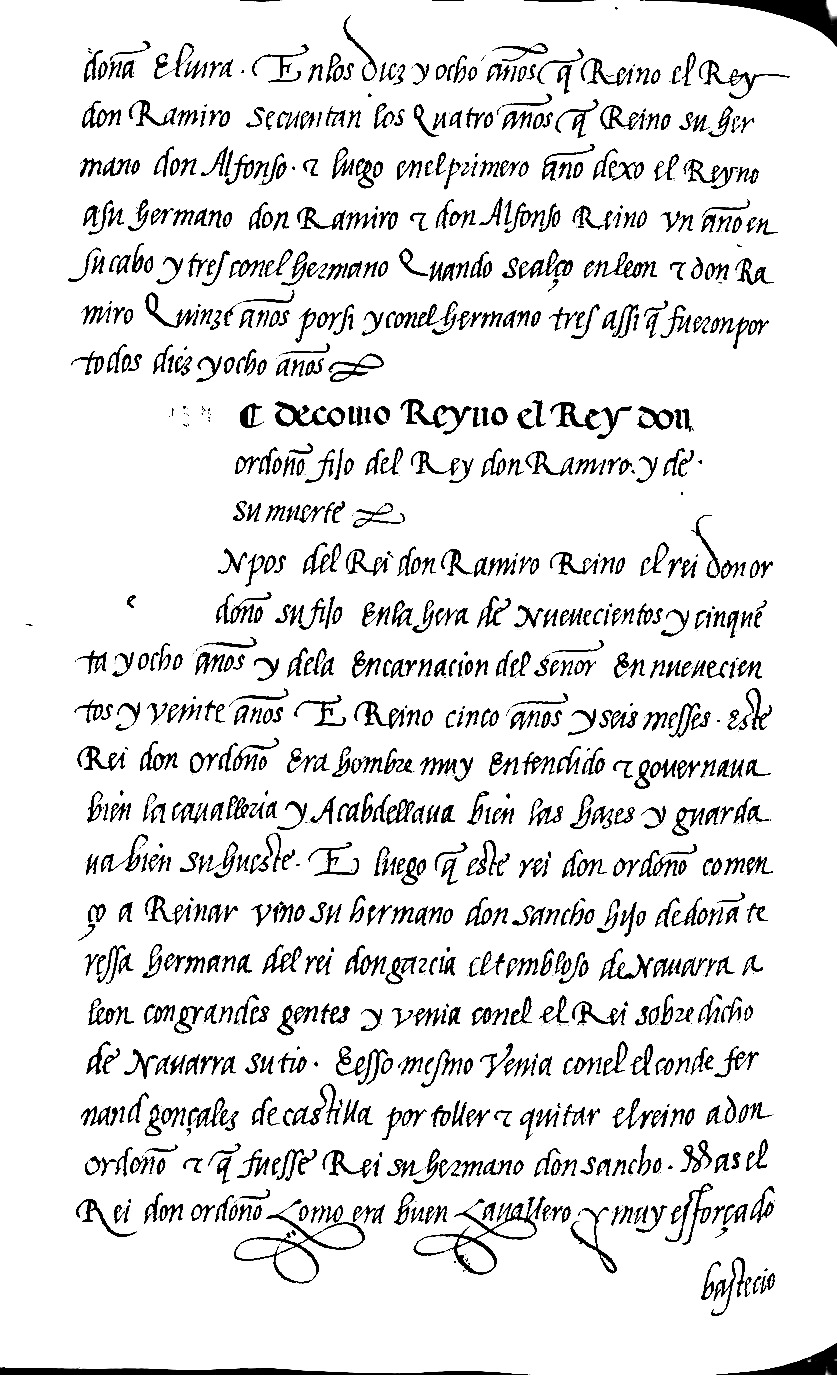 doña Eluira. E nlos diez y ocho años q̃ Reino el Rey
don Ramiro secuentan los Quatro años q̃ Reino su her
mano don Alfonso. ⁊ luego enelprimero año dexo el Reyno
asu hermano don Ramiro ⁊ don Alfonso Reino vn año en
su cabo y tres conel hermano Quando sealço enleon ⁊ don Ra
miro Quinze años porsi y conel hermano tres assi q̃ fueron por
todos diez y ocho años
¶ de como Reyno el Rey don
ordoño fijo del Rey don Ramiro. y de
su muerte
Npos del Rei don Ramiro Reino el rei don or
e doño su fijo Enla hera de Nueuecientos y cinquẽ
ta y ocho años y dela Encarnacion del señor En nueuecien
tos y veinte años E Reino cinco años y seis messes. Este
Rei don ordoño Era hombre muy Entendido ⁊ gouernaua
bien la caualleria y Acabdellaua bien las hazes y guarda
ua bien su hueste. E luego q̃ este rei don ordoño comen
ço a Reinar vino su hermano don sancho hijo de doña te
ressa hermana del rei don garcia el tembloso de Nauarra a
leon con grandes gentes y venia conel el Rei sobre dicho
de Nauarra su tio. E esso mesmo Venia conel el conde fer
nand gonçales de castilla por toller ⁊ quitar el reino a don
ordoño ⁊ q̃ fuesse Rei su hermano don sancho. Mas el
Rei don ordoño Como era buen Cauallero y muy esforçado
bastecio